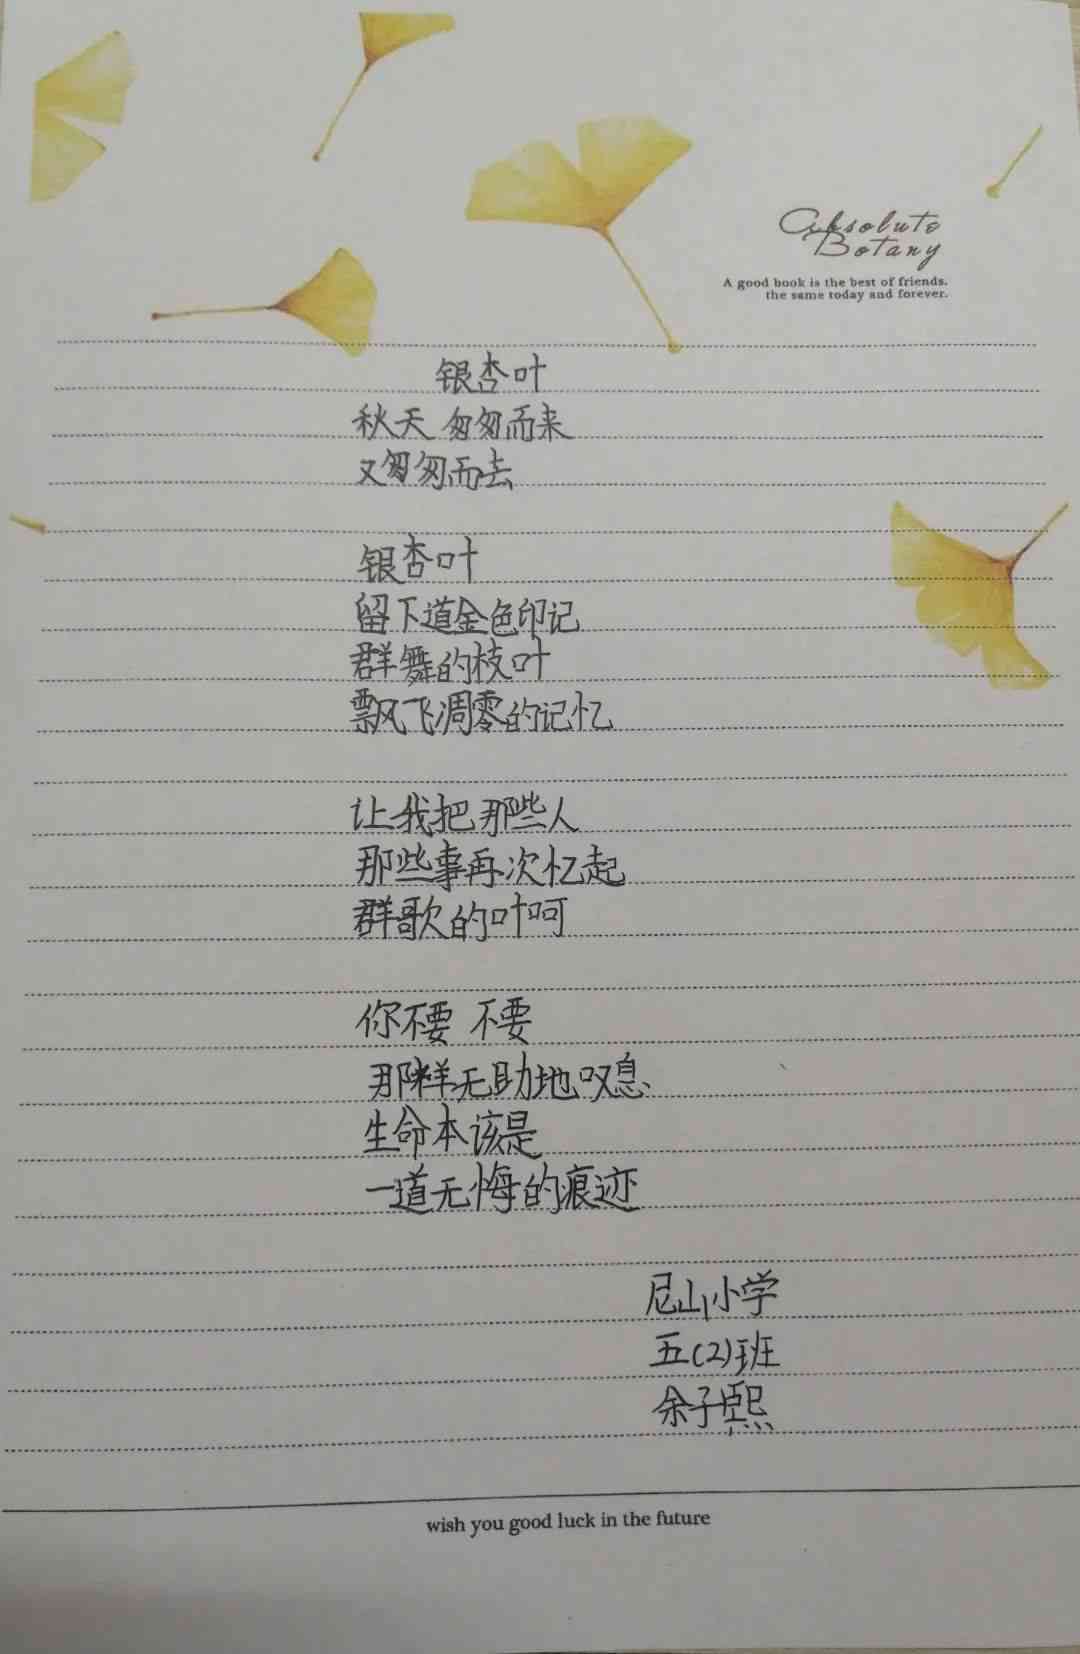 Absolute
Botany
A good book is the best of friends.
the same today and forever.
银杏叶
秋天 匆匆而来
又匆匆而去
银杏叶
留下道金色印记
群舞的枝叶
飘风飞凋零的记忆
让我把那些人
那些事再次忆起
群歌的叶呵
你不要 不要
那样无助地叹息
生命本该是
一道无悔的痕迹
尼山小学
五(2)班
余子熙
wish you good luck in the future